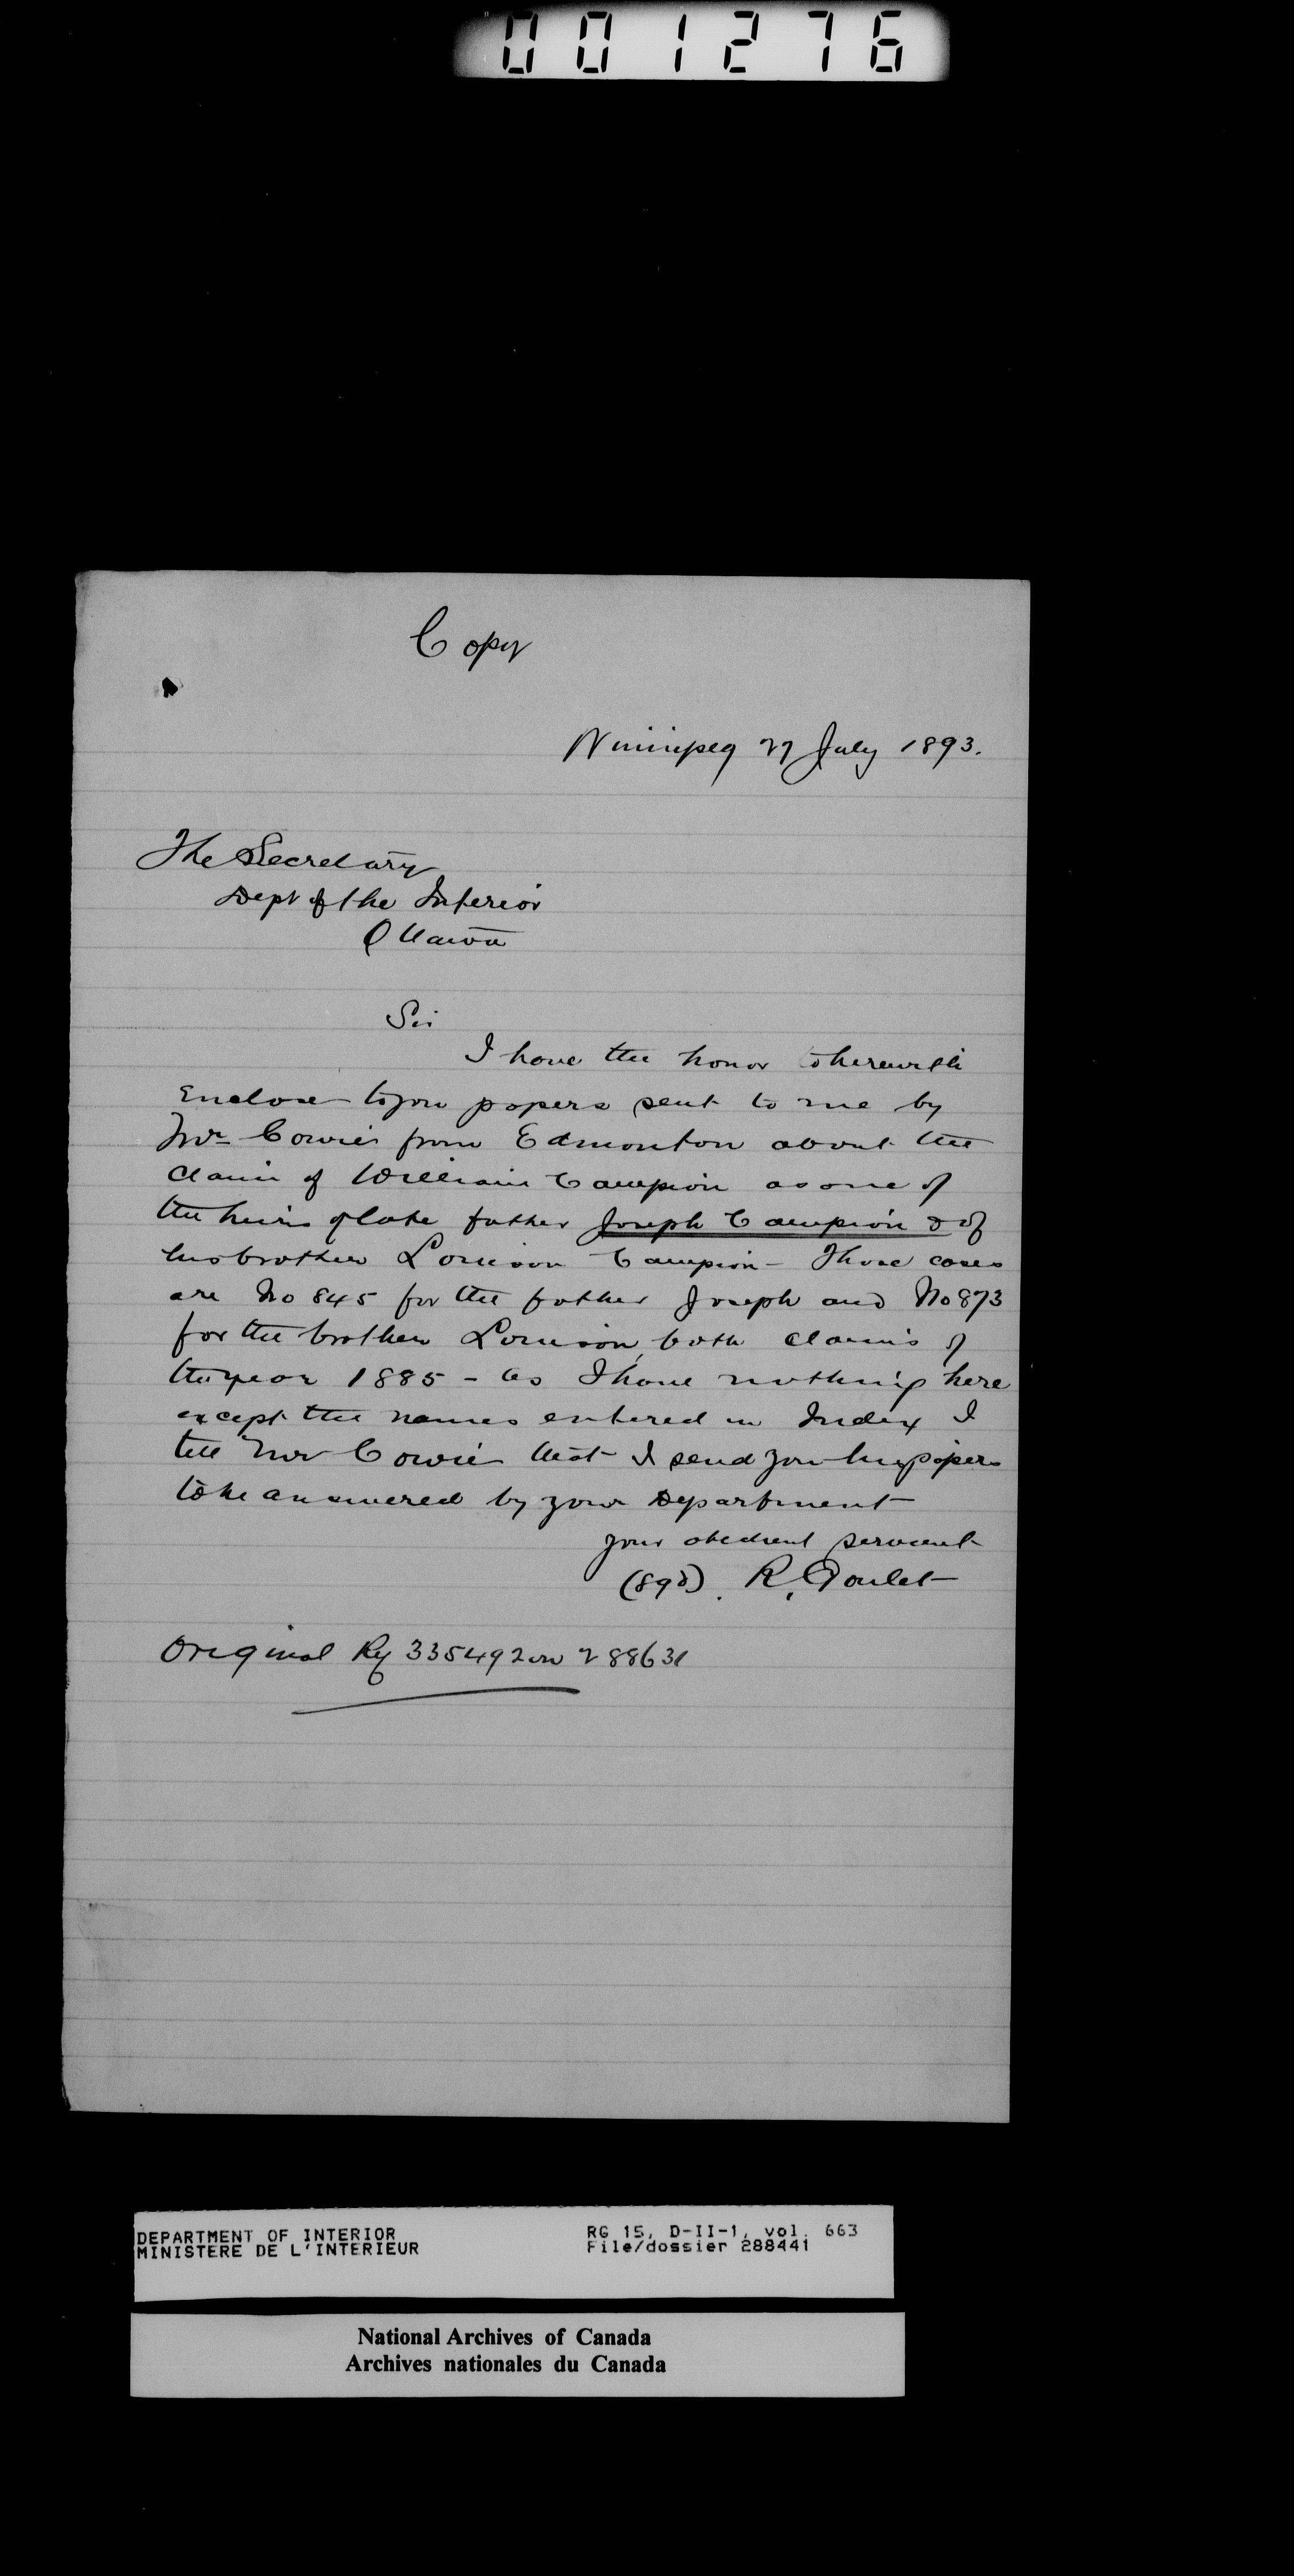 001276
Copy
Winnipeg 27 July 1893.
The Secretary
Dept of the Interior
Ottawa
Sir
I have the honor to herewith
Enclose to you papers sent to me by
Mr Cowie from Edmonton about the
Claim of William Campion as one of
the heirs of late father Joseph Campion & of
his brother Louison Campion - Those cases
are No 845 for the father Joseph and No 873
for the brother Louison, both claims of
the year 1885 - As I have nothing here
except the names entered in Index I
tell Mr Cowie that I send you his papers
to be answered by your Department
your obedient servant
(sgd). R. Goulet
Original Ry 335492 on 288631
DEPARTMENT OF INTERIOR RG 15, D-II-1, vol. 663
MINISTERE DE L'INTERIEUR File/dossier 288441
National Archives of Canada
Archives nationales du Canada